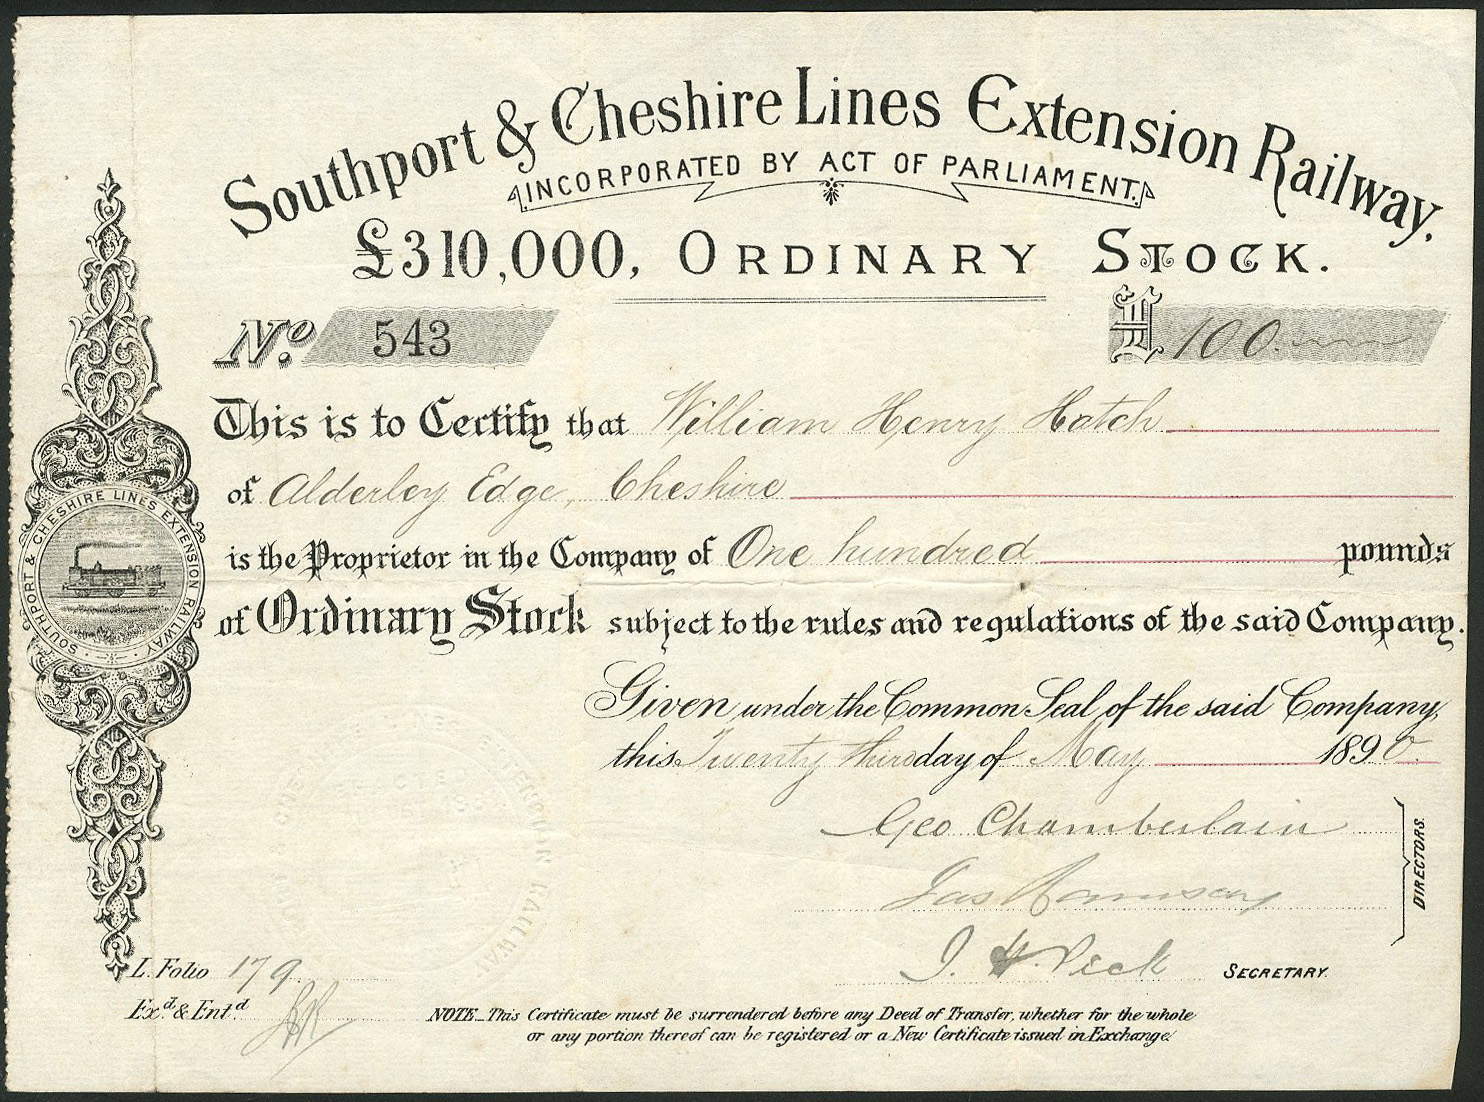 Southport & Cheshire Lines Extension Railway.
INCORPORATED BY ACT OF PARLIAMENT.
£310,000, ORDINARY STOCK.
No. 543
£ 100.
This is to Certify that William Henry Hatch
of Alderley Edge, Cheshire
is the Proprietor in the Company of One hundred pounds
of Ordinary Stock subject to the rules and regulations of the said Company.
SOUTHPORT & CHESHIRE LINES EXTENSION RAILWAY.
Given under the Common Seal of the said Company,
this Twenty third day of May 1890.
Geo Chamberlain
Jas Ramsay
DIRECTORS.
J. H. Peck SECRETARY.
L. Folio 179
Exd. & Entd.
NOTE_This Certificate must be surrendered before any Deed of Transfer, whether for the whole
or any portion thereof can be registered or a New Certificate issued in Exchange.